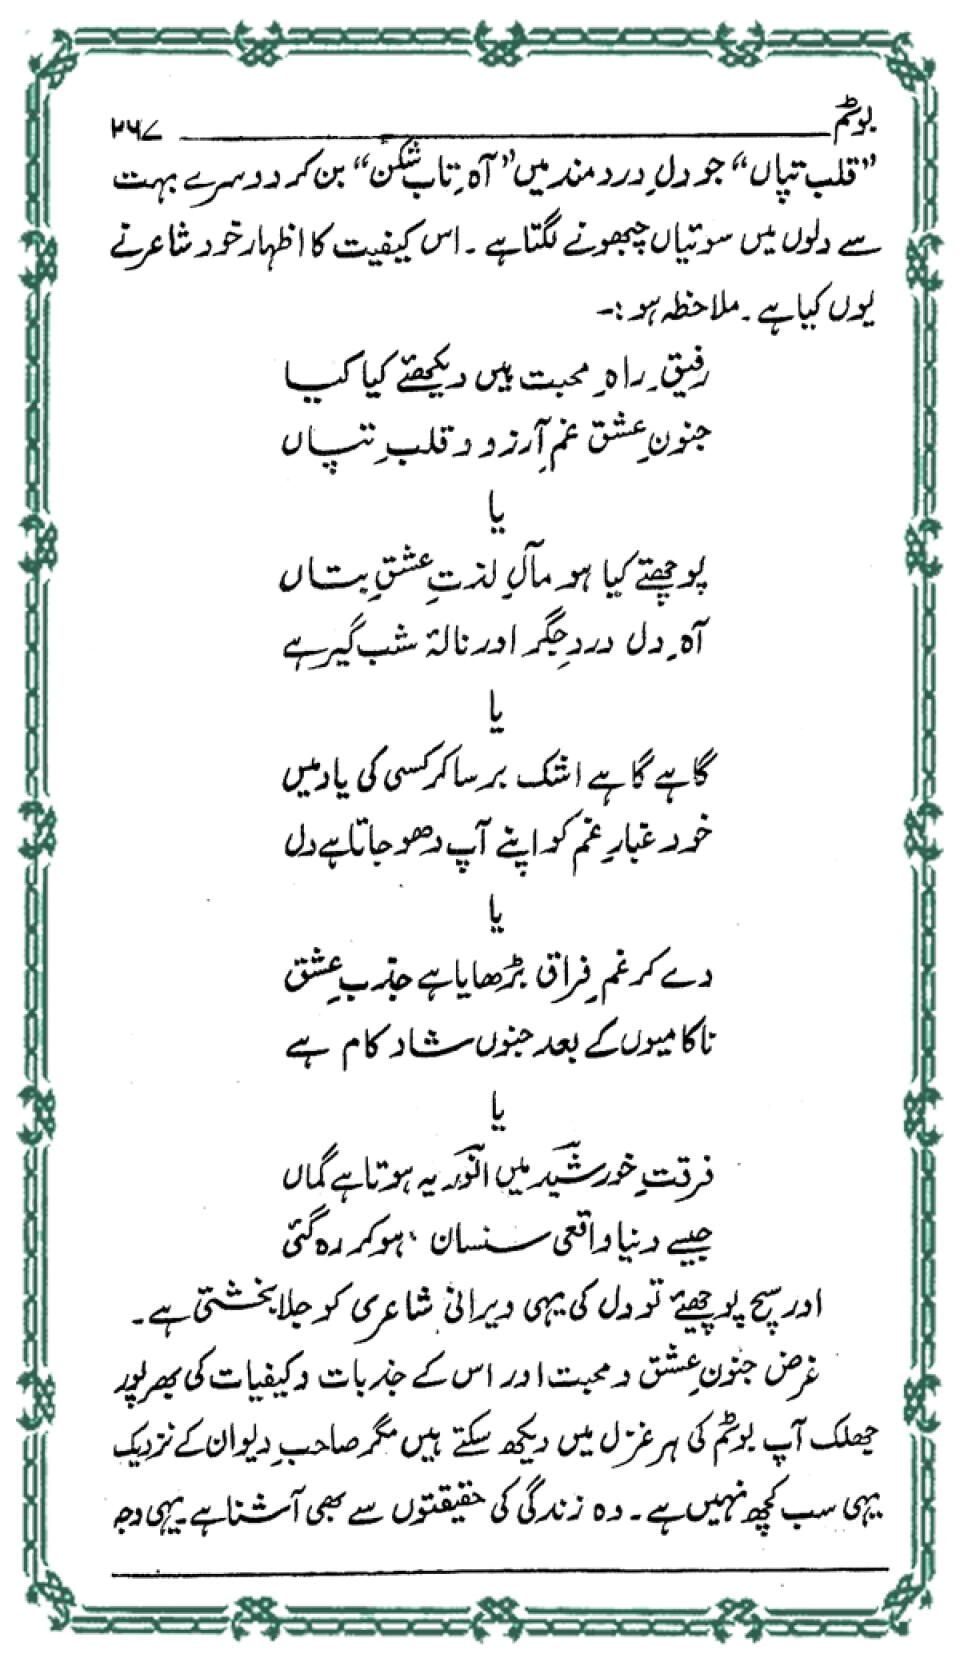 بوٹم ۲۶۷
”قلب تپاں“ جو دلِ درد مند میں ”آہِ تاب شکن“ بن کر دوسرے بہت
سے دلوں میں سوئیاں چبھونے لگتا ہے۔ اس کیفیت کا اظہار خود شاعر نے
یوں کیا ہے۔ ملاحظہ ہو :-
رفیقِ راہِ محبت ہیں دیکھئے کیا کیا
جنونِ عشق غمِ آرزو و قلبِ تپاں
یا
پوچھتے کیا ہو مآلِ لذتِ عشقِ بتاں
آہِ دل دردِ جگر اور نالۂ شب گیر ہے
یا
گاہے گاہے اشک برسا کر کسی کی یاد میں
خود غبارِ غم کو اپنے آپ دھو جاتا ہے دل
یا
دے کر غمِ فراق بڑھایا ہے جذبِ عشق
ناکامیوں کے بعد جنوں شاد کام ہے
یا
فرقتِ خورشید میں انور یہ ہوتا ہے گماں
جیسے دنیا واقعی سنسان ہو کر رہ گئی
اور سچ پوچھیئے تو دل کی یہی ویرانی شاعری کو جلا بخشتی ہے۔
غرض جنونِ عشق و محبت اور اس کے جذبات و کیفیات کی بھرپور
جھلک آپ بوٹم کی ہر غزل میں دیکھ سکتے ہیں مگر صاحبِ دیوان کے نزدیک
یہی سب کچھ نہیں ہے۔ وہ زندگی کی حقیقتوں سے بھی آشنا ہے۔ یہی وجہ